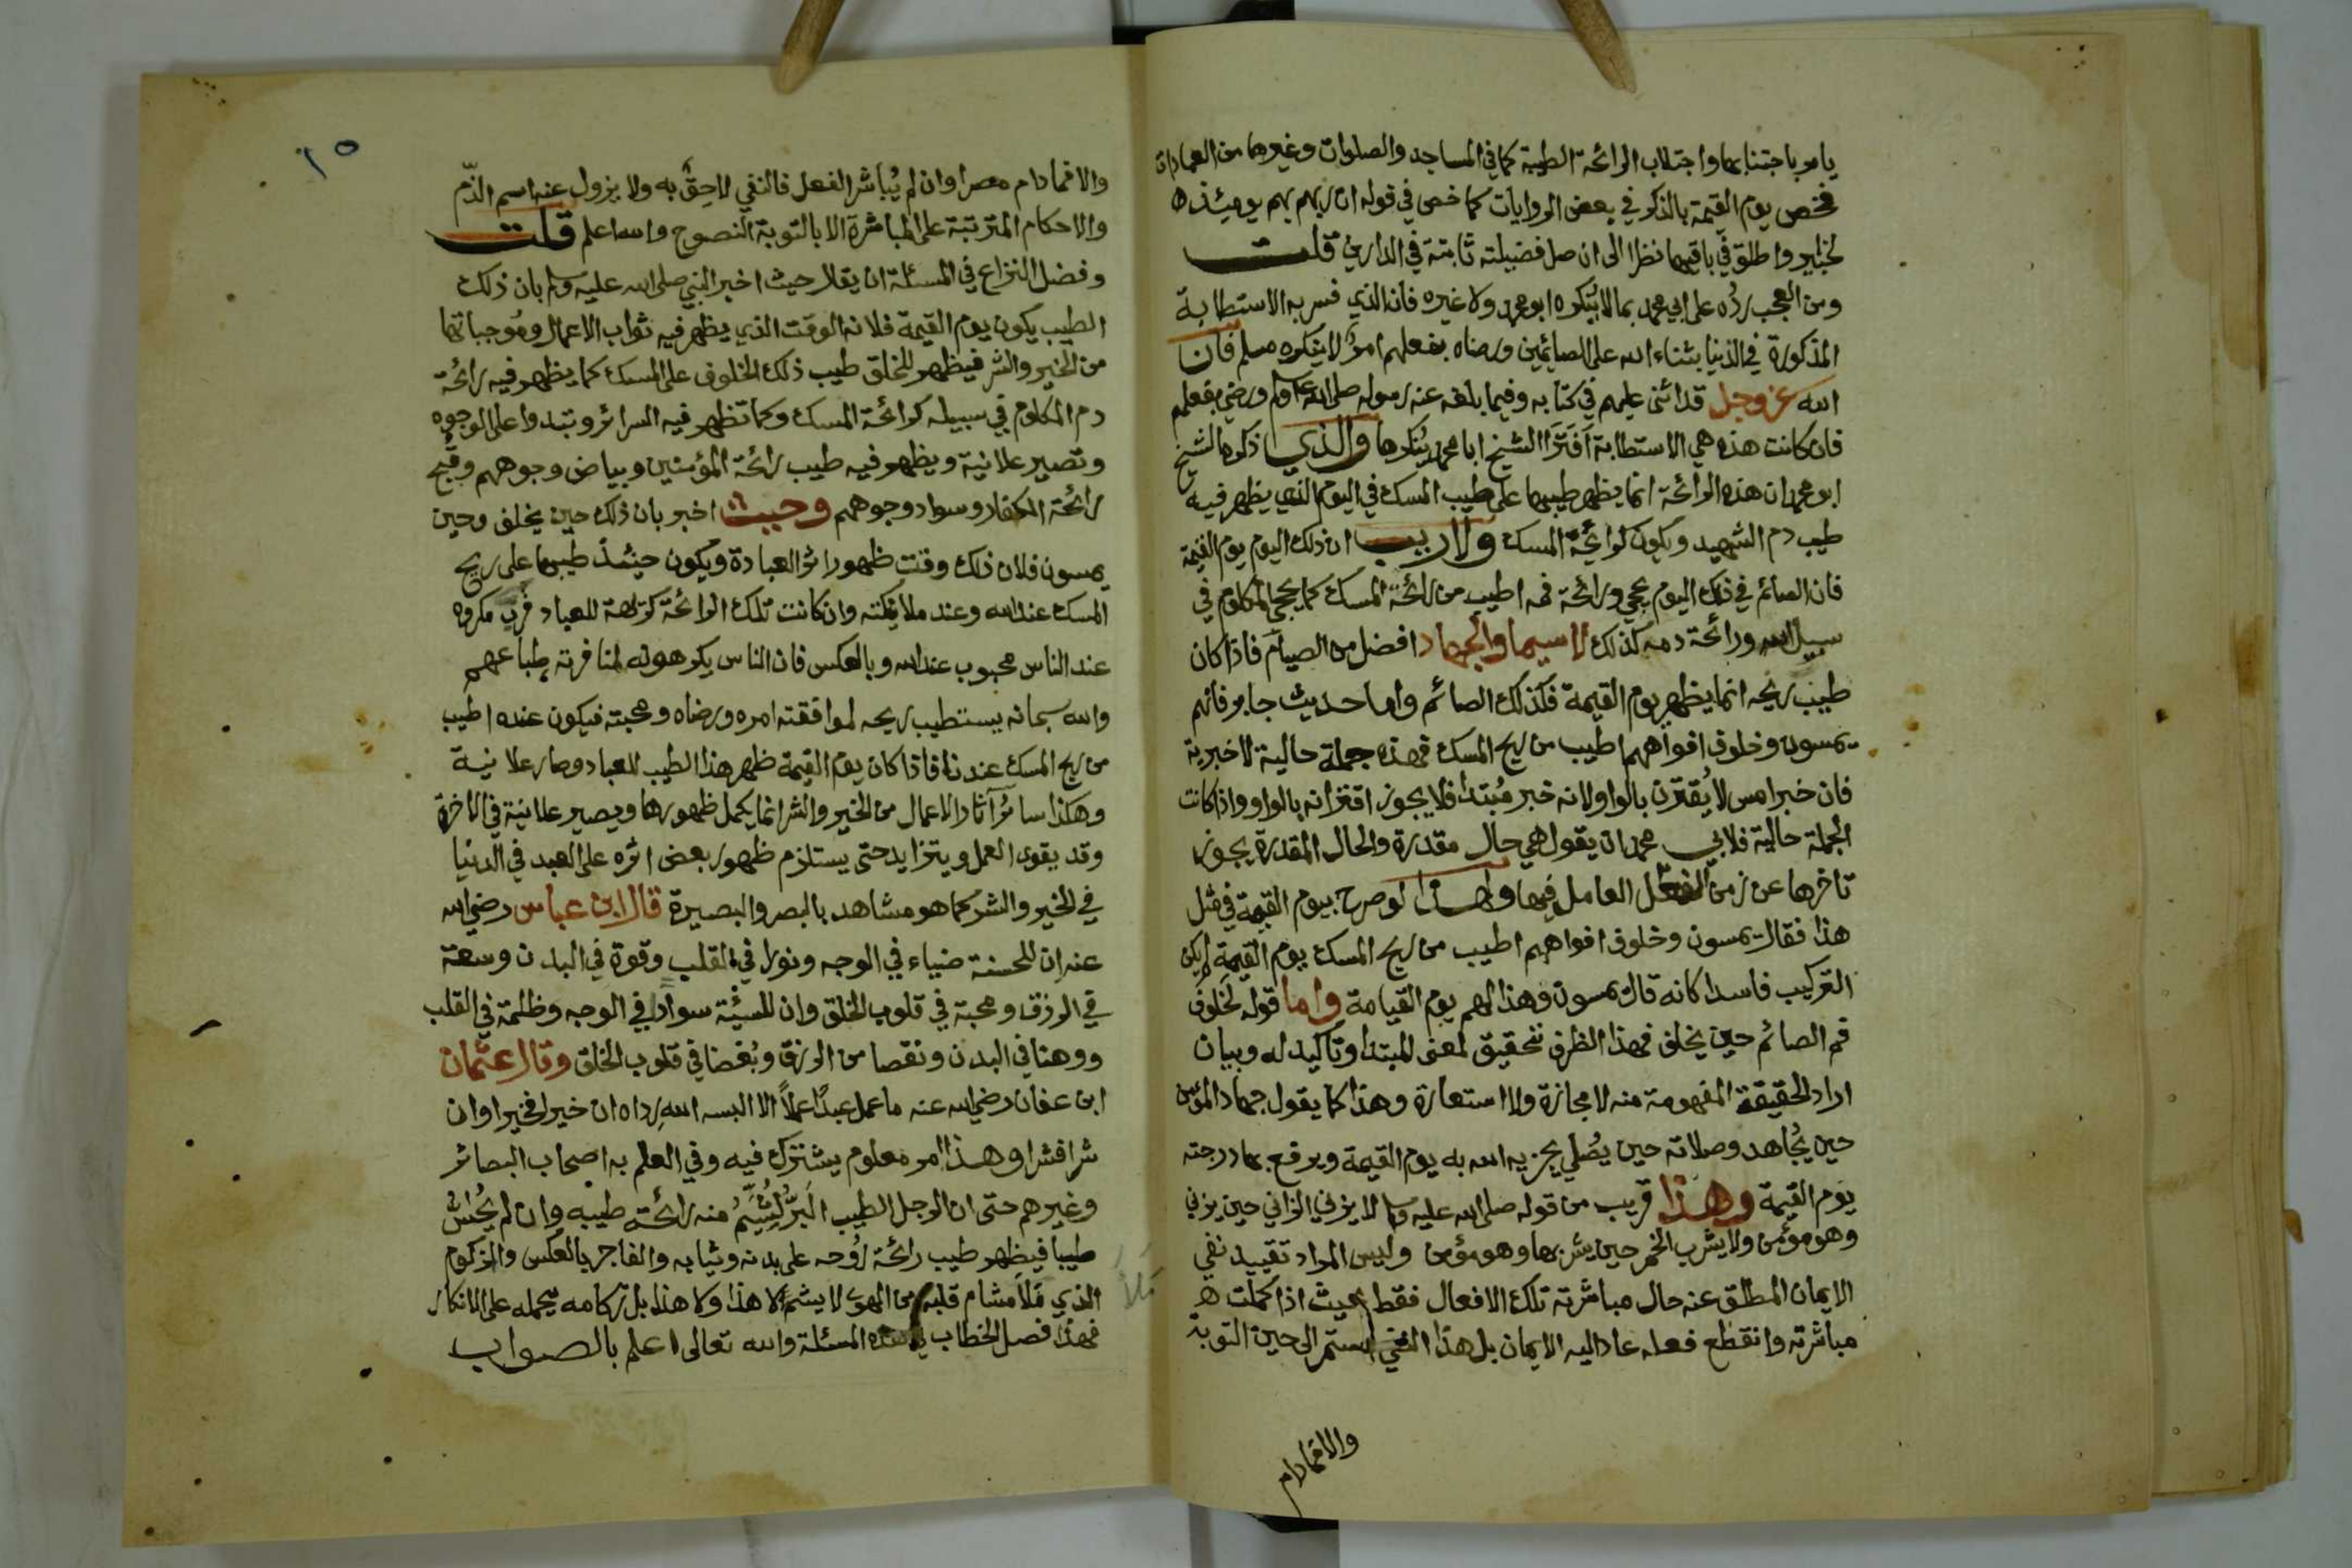 يامر باجتنابها واجتلاب الرائحة الطيبة كما في المساجد والصلوات وغيرها من العبادات
فخص يوم القيمة بالذكر في بعض الروايات كما خص في قوله ان ربهم بهم يومئذ
لخبير واطلق في باقيها نظرا الى ان صل فضيلته ثابتة في الدارين قلت
ومن العجب رده على ابي محمد بما لا ينكره ابو محمد ولا غيره فان الذي فسر به الاستطابة
المذكورة في الدنيا بثناء الله على الصائمين ورضاه بفعلهم امر لا ينكره مسلم فان
الله عز وجل قد اثنى عليهم في كتابه وفيما بلغه عنه رسوله صلى الله عليه وسلم ورضي بفعلهم
فان كانت هذه هي الاستطابة أفترا الشيخ ابا محمد ينكرها والذي ذكرها الشيخ
ابو محمد ان هذه الرائحة انما يظهر طيبها على طيب المسك في اليوم الذي يظهر فيه
طيب دم الشهيد ويكون كرائحة المسك ولا ريب ان ذلك اليوم يوم القيمة
فان الصائم في ذلك اليوم يجي ورائحة فمه اطيب من رائحة المسك كما يجي المكلوم في
سبيل الله ورائحة دمه كذلك لا سيما والجهاد افضل من الصيام فاذا كان
طيب ريحه انما يظهر يوم القيمة فكذلك الصائم واما حديث جابر فانهم
يمسون وخلوف افواههم اطيب من ريح المسك فهذه جملة حالية لا خبرية
فان خبر امس لا يقترن بالواو لانه خبر مبتدا فلا يجوز اقترانه بالواو واذا كانت
الجملة حالية فلابي محمد ان يقول هي حال مقدرة والحال المقدرة يجوز
تاخرها عن زمن الفعل العامل فيها ولهذا لو صرح بيوم القيمة في مثل
هذا فقال يمسون وخلوف افواههم اطيب من ريح المسك يوم القيمة لم يكن
التركيب فاسدا كانه قال يمسون وهذا لهم يوم القيامة واما قوله لخلوف
فم الصائم حين يخلف فهذا الظرف تحقيق لمعنى المبتدا وتاكيد له وبيان
اراد الحقيقة المفهومة منه لا مجازة ولا استعارة وهذا كما يقول جهاد المؤمن
حين يُجاهد وصلاته حين يُصلي يجزيه الله به يوم القيمة ويرفع بها درجته
يوم القيمة وهذا قريب من قوله صلى الله عليه وسلم لا يزني الزاني حين يزني
وهو مؤمن ولا يشرب الخمر حين يشربها وهو مؤمن وليس المراد تقييد نفي
الايمان المطلق عنه حال مباشرته تلك الافعال فقط بحيث اذا كملت
مباشرته وانقطع فعله عاد اليه الايمان بل هذا النفي استمر الى حين التوبة
والا فما دام
١٥
والا فما دام مصرا وان لم يُباشر الفعل فالنفي لاحِقٌ به ولا يزول عنه اسم الذّم
والاحكام المترتبة على المباشرة الا بالتوبة النصوح والله اعلم قلت
وفصل النزاع في المسئلة ان يقال حيث اخبر النبي صلى الله عليه وسلم بان ذلك
الطيب يكون يوم القيمة فلانه الوقت الذي يظهر فيه ثواب الاعمال ومُوجباتها
من الخير والشر فيظهر للخلق طيب ذلك الخلوف على المسك كما يظهر فيه رائحة
دم المكلوم في سبيله كرائحة المسك وكما تظهر فيه السرائر وتبدوا على الوجوه
وتصير علانية ويظهر فيه طيب رائحة المؤمنين وبياض وجوههم وقبح
رائحة الكفار وسواد وجوههم وحيث اخبر بان ذلك حين يخلف وحين
يمسون فلان ذلك وقت ظهور اثر العبادة ويكون حينئذ طيبها على ريح
المسك عند الله وعند ملائكته وان كانت تلك الرائحة كريهة للعباد فرب مكروه
عند الناس محبوب عند الله وبالعكس فان الناس يكرهونه لمنافرته طباعهم
والله سبحانه يستطيب ريحه لموافقته امره ورضاه ومحبته فيكون عنده اطيب
من ريح المسك عندنا فاذا كان يوم القيمة ظهر هذا الطيب للعباد وصار علانية
وهكذا سائر آثار الاعمال من الخير والشر انما يكمل ظهورها ويصير علانية في الاخرة
وقد يقوى العمل ويتزايد حتى يستلزم ظهور بعض اثره على العبد في الدنيا
في الخير والشر كما هو مشاهد بالبصر والبصيرة قال ابن عباس رضي الله
عنه ان للحسنة ضياء في الوجه ونورا في القلب وقوة في البدن وسعة
في الرزق ومحبة في قلوب الخلق وان للسيئة سوادا في الوجه وظلمة في القلب
ووهنا في البدن ونقصا من الرزق وبُغضا في قلوب الخلق وقال عثمان
ابن عفان رضي الله عنه ما عمل عبدًا عملًا الا البسه الله رداه ان خيرا فخيرا وان
شرا فشرا وهذا امر معلوم يشترك فيه وفي العلم به اصحاب البصائر
وغيرهم حتى ان الرجل الطيب البَرّ ليُشَمُّ منه رائحة طيبه وان لم يُمَس
طيبا فيظهر طيب رائحة رُوحه على بدنه وثيابه والفاجر بالعكس والزكوم
الذي مَلأ مشام قلبه من الهوى لا يشم لا هذا ولا هذا بل زكامه يحمله على الانكار
فهذا فصل الخطاب في هذه المسئلة والله تعالى اعلم بالصواب